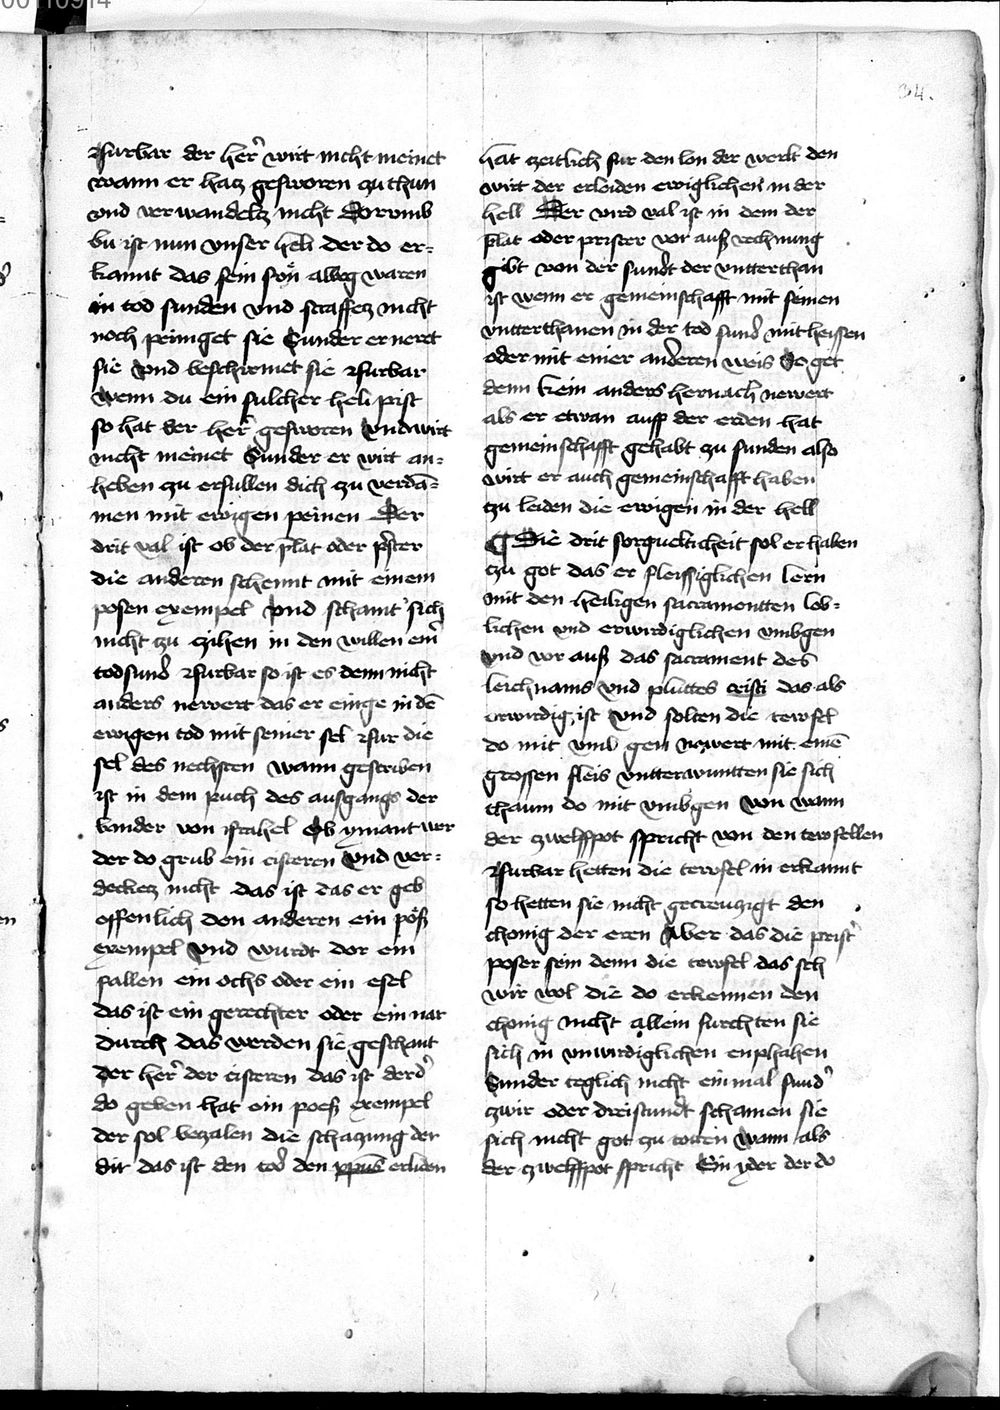 00110914
34.
Furbar der her̄ wirt nicht meinet
wann er hacz gesworen zu thun
vnd verwandelcz nicht Dorvmb
bu ist nun vnser heli der do er=
kannt das sein sön allbeg waren
in tod sunden vnd straffecz nicht
noch peiniget sie Sunder er neret
sie vnd beschirmet sie Furbar
wenn du ein sulcher heli pist
so hat der her̄ gesworen vnd wirt
nicht meinet Sunder er wirt an=
heben zu erfullen dich zu verdā=
men mit ewigen peinen Der
drit val ist ob der p̄lat oder p̄ster
die anderen schennt mit einem
posen exempel vnd schamt sich
nicht zu zihen in den willen ein̄
todsund̄ Furbar so ist es denn nicht
anders newert das er einge in dē
ewigen tod mit seiner sel Fur die
sel des nechsten wann gescriben
ist in dem puch des ausgangs der
kinder von israhel Ob ymant wer
der do grub ein cisteren vnd ver=
deckecz nicht das ist das er geb
offenlich den anderen ein pöß
exempel vnd wurdt dor ein
fallen ein ochs oder ein esel
das ist ein gerechter oder ein nar
durch das werden sie geschant
der her̄ der cisteren das ist der d̄
do geben hat ein poeß exempel
der sol bezalen die schaczung der
dir das ist den tod den xp̄us erliden
hat zeitlich fur den lon der werlt den
wirt der erleiden ewiglichen in der
hell Der vird val ist in dem der
plat oder prister vor auß rechnung
gibt von der sundt der vntterthan
ist wenn er gemeinschafft mit seinen
vntterthanen in der tod sund̄ mit heissen
oder mit einer anderen weis So get
denn kein anders hernach newert
als er etwan auff der erden hat
gemeinschafft gehabt zu sunden also
wirt er auch gemeinschafft haben
zu leiden die ewigen in der hell
¶ Die drit sorgueltickeit sol er haben
zu got das er fleissiglichen lern
mit den heiligen sacramentten lob=
lichen vnd erwirdiglichen vmbgen
vnd vor auß das sacrament des
leichnams vnd pluttes cristi das als
erwirdig ist vnd solten die tewfel
do mit vmb gen newert mit einē
grossen fleis vntterwuntten sie sich
thaum do mit vmbgen von wann
der zwelffpot spricht von den tewfellen
Furbar hetten die tewfel in erkannt
so hetten sie nicht gecreuczigt den
chonig der eren Aber das die prist̄
poser sein denn die tewfel das seh
wir wol die do erkennen den
chonig nicht allein furchten sie
sich in vnwirdiglichen enphahen
Sunder teglich nicht einmal sund̄
zwir oder dreistundt schamen sie
sich nicht got zu totten wann als
der zwelffpot spricht Ein yder der do